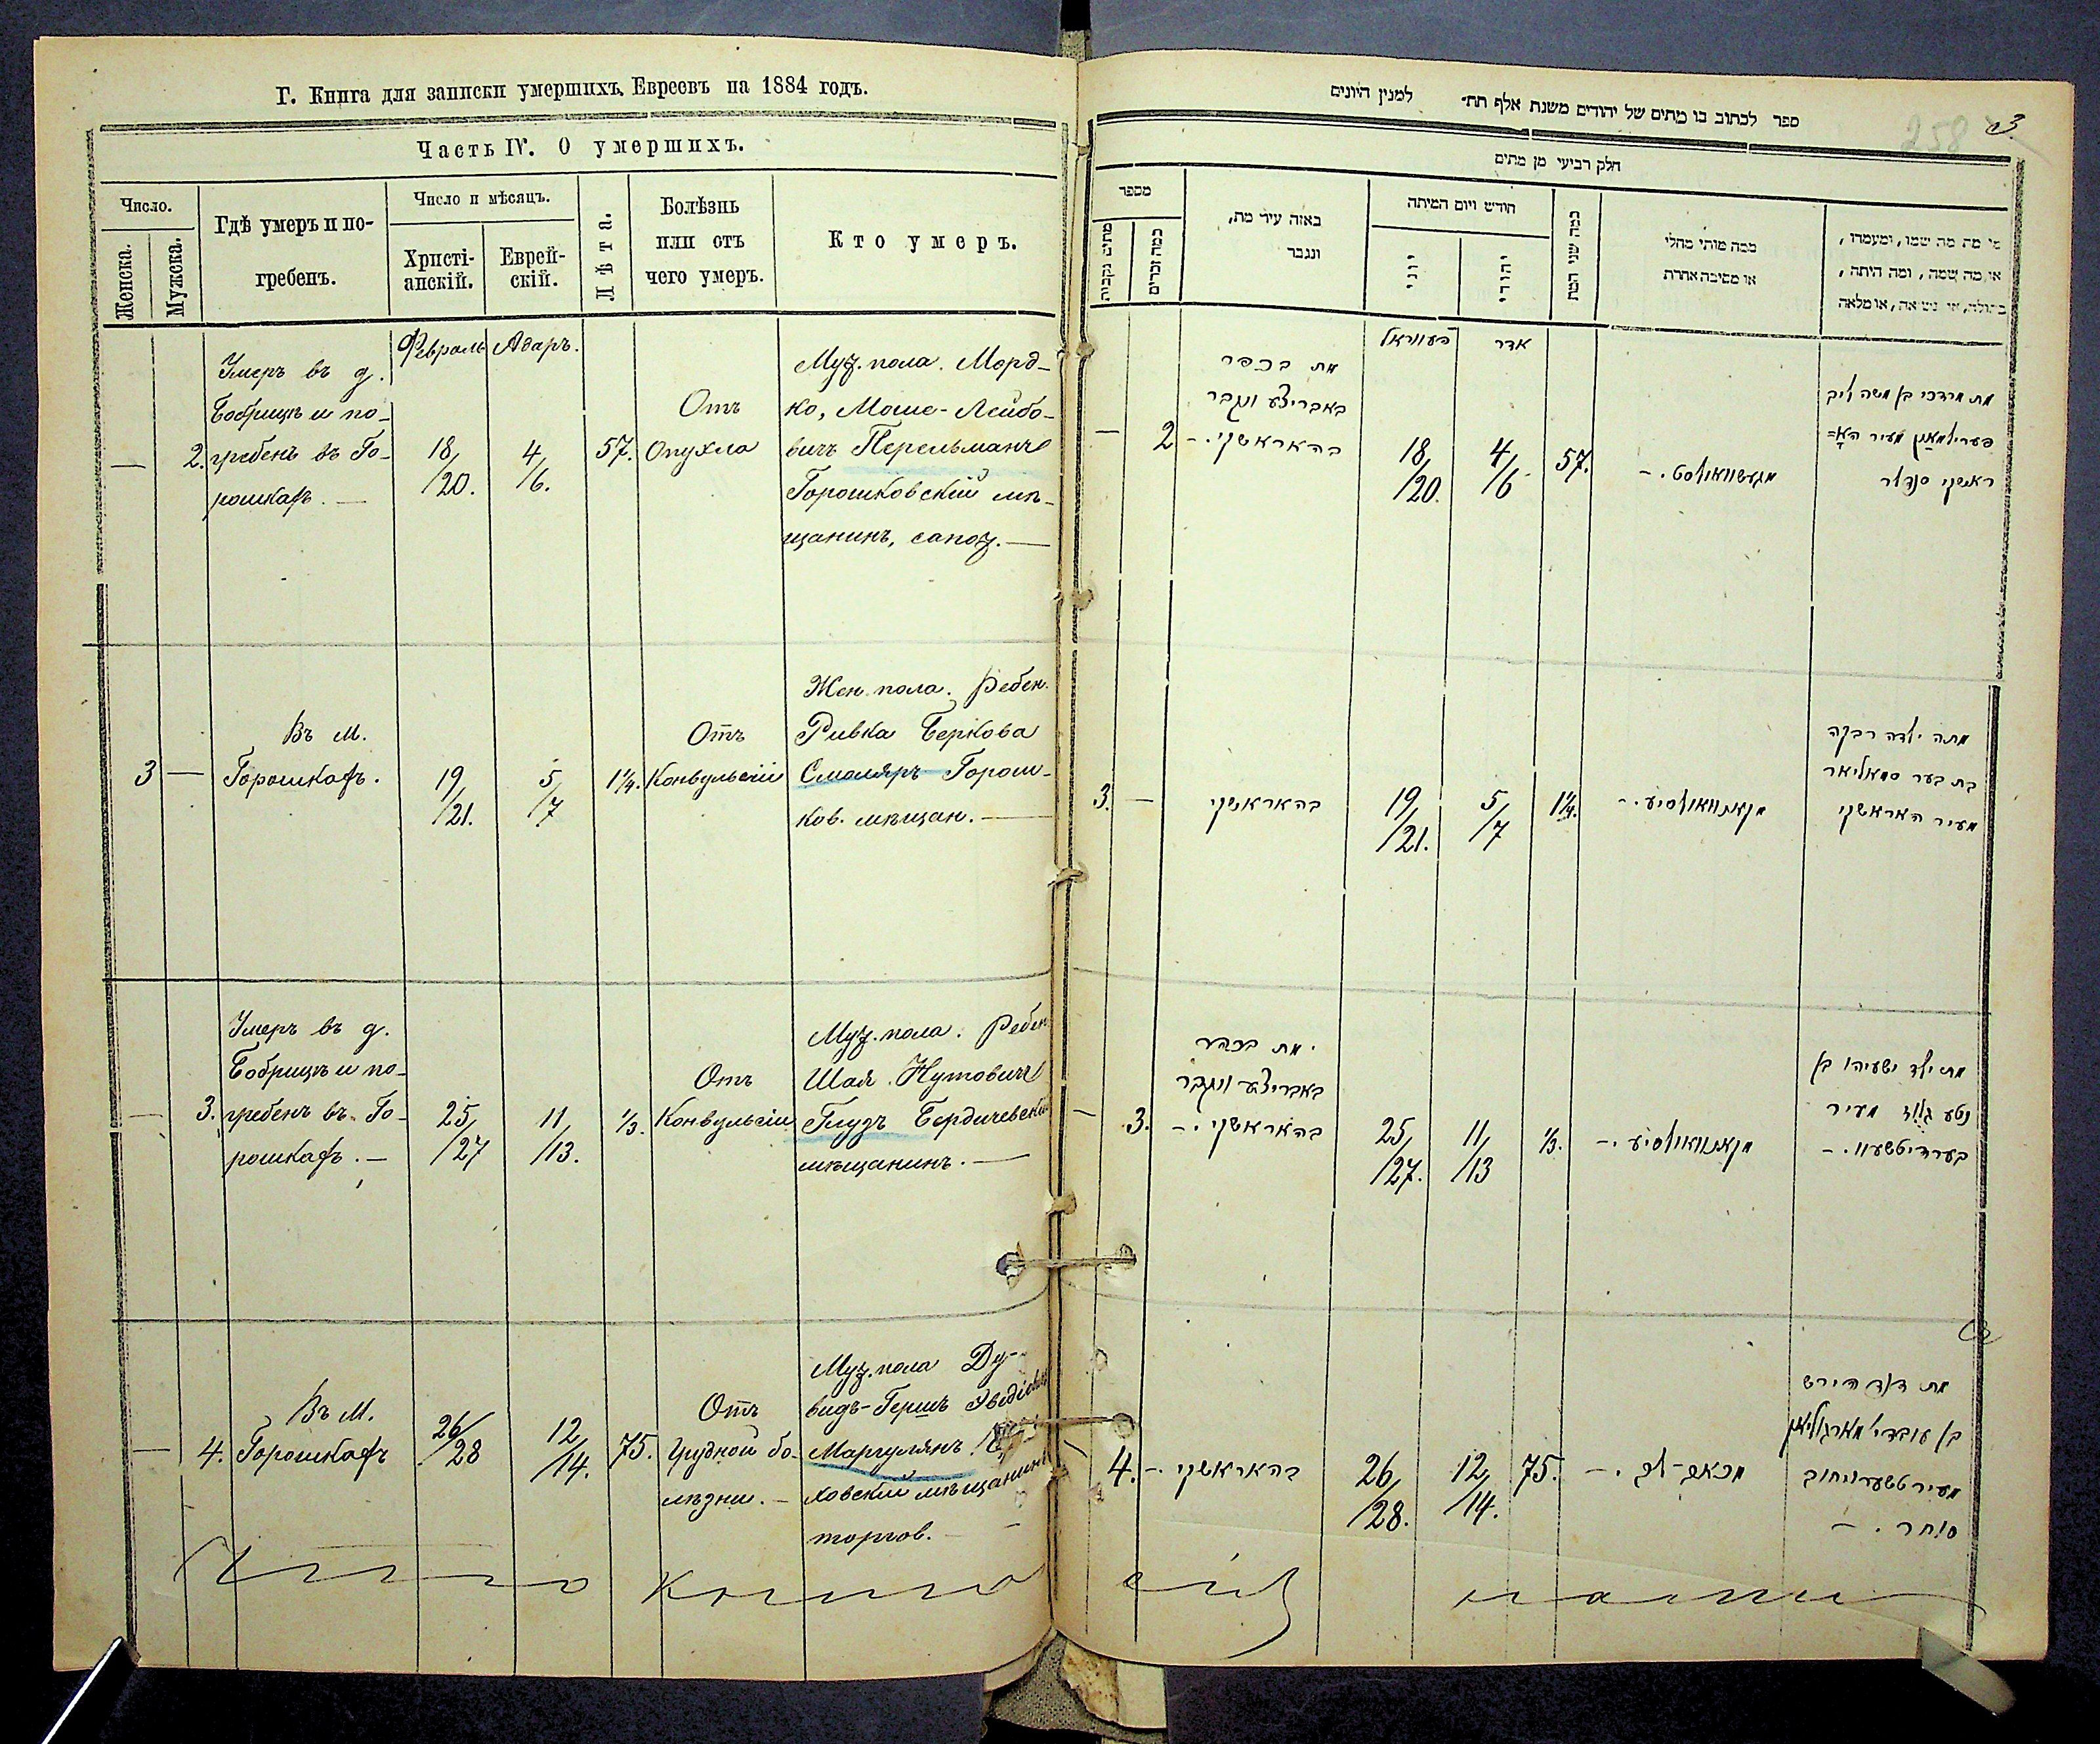 Г. Книга для записки умершихъ Евреевъ на 1884 годъ.
Часть IV. О умершихъ.
Число.
Женска.
Мужска.
Гдѣ умеръ и по-
гребенъ.
Число и мѣсяцъ.
Христі-
анскій.
Еврей-
скій.
Лѣта.
Болѣзнь
или отъ
чего умеръ.
Кто умеръ.
Февраль Адаръ.
Умеръ въ д.
Бобрицѣ и по-
— 2. гребенъ въ Го-
рошкахъ. —
18/20. 4/6. 57.
Отъ
Опухла
Муж. пола. Морд-
ко, Моше-Лейбо-
вичъ Перельманъ
Горошковскій мѣ-
щанинъ, сапож. —
3 —
Въ м.
Горошкахъ.
19/21. 5/7 1¼.
Отъ
Конвульсіи
Жен. пола. Ребен.
Ривка Беркова
Смоляръ Горош-
ков. мѣщан. —
Умеръ въ д.
Бобрицѣ и по-
— 3. гребенъ въ Го-
рошкахъ. —
25/27 11/13. ⅓.
Отъ
Конвульсіи
Муж. пола. Ребен.
Шая Нутовичъ
Глузъ Бердичевскій
мѣщанинъ. —
Въ м.
— 4. Горошкахъ
26/28 12/14. 75.
Отъ
грудной бо-
лѣзни. —
Муж. пола Ду-
видъ-Гершъ
Маргулянъ
ховскій мѣщанинъ
торгов. —
ספר לכתוב בו מתים של יהודים משנת אלף תת״ למנין היונים
3
258
חלק רביעי מן מתים
מספר
מתים נקבות
כמה זכרים
באזה עיר מת,
ונגבר
חודש ויום המיתה
יוני
יהודי
כמה שני המת
ממה מותי מחלי
או מסיבה אחרת
מי מת מה שמו, ומעמדו,
או מה שמה, ומה היתה,
בתולה, או נשואה, או מלאה
פעווראל אדר
— 2
מת בכפר
באבריצע ונקבר
בהאראשקי. –
18/20. 4/6 57.
מגעשוואולסט. –
מת מרדכי בן משה ליב
פערילמאַן מעיר האָ=
ראשקי סנדלר
3. —
בהאראשקי
19/21. 5/7 1¼.
מקאנוואולסיע. –
מתה ילדה רבקה
בת בער סמאליאר
מעיר האראשקי
— 3.
מת בכפר
באבריצע ונקבר
בהאראשקי. –
25/27. 11/13 ⅓.
מקאנוואולסיע. –
מת ילד ישעיהו בן
נטע גלוז מעיר
בערדיטשעוו. –
4. –
בהאראשקי
26/28. 12/14. 75.
מכאב-לב. –
מת דוד הירש
בן עובדי' מארגוליאן
סוחר. –